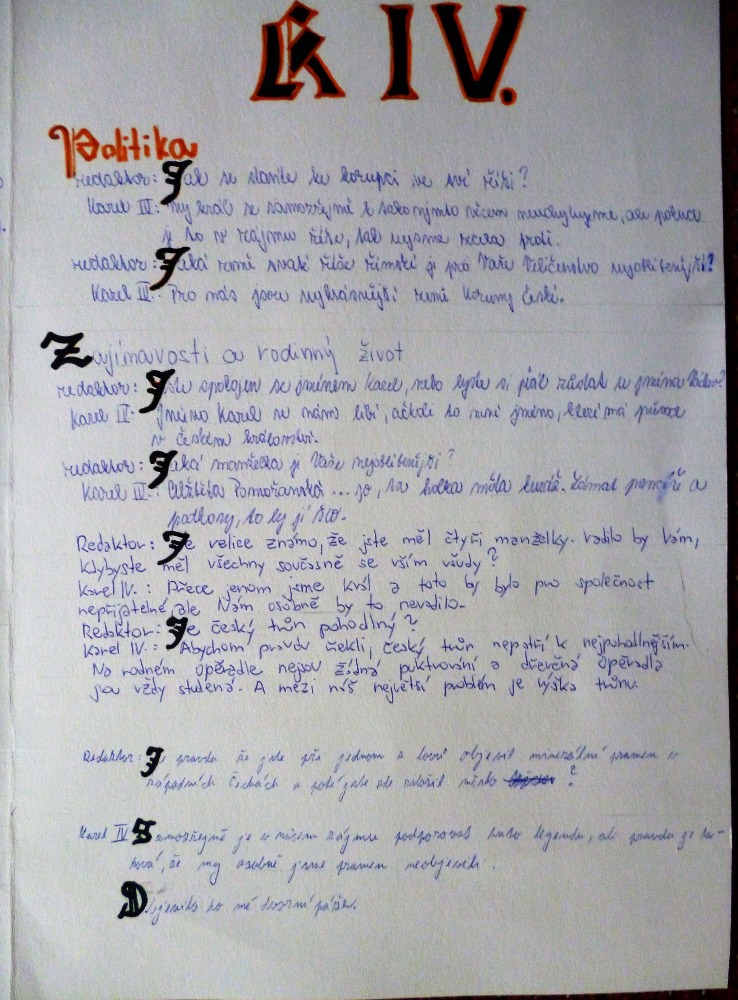 K IV.
Politika
redaktor: Jak se stavíte ke korupci ve své říši?
Karel IV: My král se samozřejmě k takovýmto věcem neuchylujeme, ale pokud
je to v zájmu říše, tak nejsme zcela proti.
redaktor: Jaká země svaté říše římské je pro Vaše Veličenstvo nejoblíbenější?
Karel IV: Pro nás jsou nejkrásnější země Koruny České.
Zajímavosti a rodinný život
redaktor: Jste spokojen se jménem Karel, nebo byste si přál zůstat u jména Václav?
Karel IV: Jméno Karel se nám líbí, ačkoli to není jméno, které má původ
v českém království.
redaktor: Jaká manželka je Vaše nejoblíbenější?
Karel IV.: Alžběta Pomořanská ... jo, ta holka měla kuráž. Lámat a
podkovy, to by jí šlo.
Redaktor: Je velice známo, že jste měl čtyři manželky. Vadilo by Vám,
kdybyste měl všechny současně se vším všudy?
Karel IV.: Přece jenom jsme král a toto by bylo pro společnost
nepřijatelné, ale Nám osobně by to nevadilo.
Redaktor: Je český trůn pohodlný?
Karel IV.: Abychom pravdu řekli, český trůn nepatří k nejpohodlnějším.
Na rodném opěradle nejsou žádná a dřevěná opěradla
jsou vždy studená. A mezi náš největší problém je výška trůnu.
Redaktor: Je pravda že jste při jednom z lovů objevil minerální pramen v
západních Čechách a poté jste zde založil město ?
Karel IV Samozřejmě je v našem zájmu podporovat tuto legendu, ale pravda je ta-
ková, že my osobně jsme pramen neobjevili.
Objevilo ho mé dvorní páže.